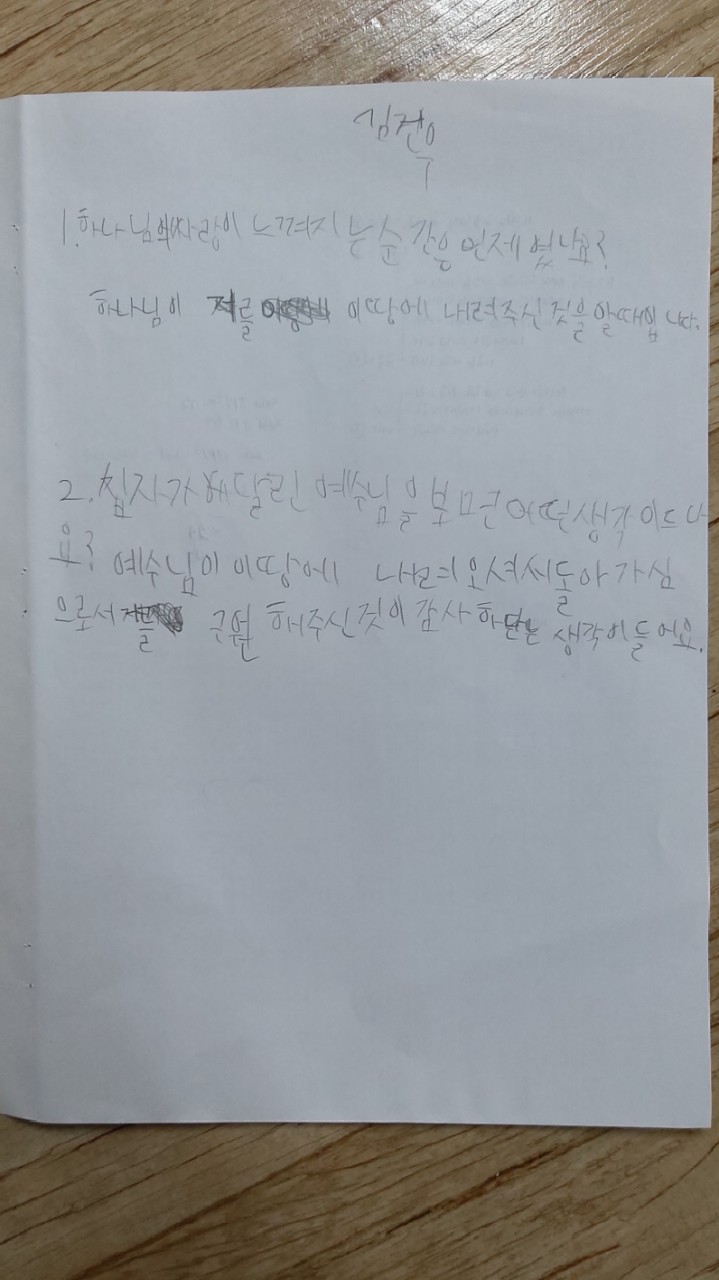 김건우
1. 하나님의 사랑이 느껴지는 순간은 언제 였나요?
하나님이 저를 이땅에 내려주신 것을 알때입니다.
2. 십자가에 달린 예수님을 보면 어떤 생각이드나
요? 예수님이 이땅에 내려오셔서 돌아가심
으로서 저를 구원 해주신것이 감사하다는 생각이들어요.